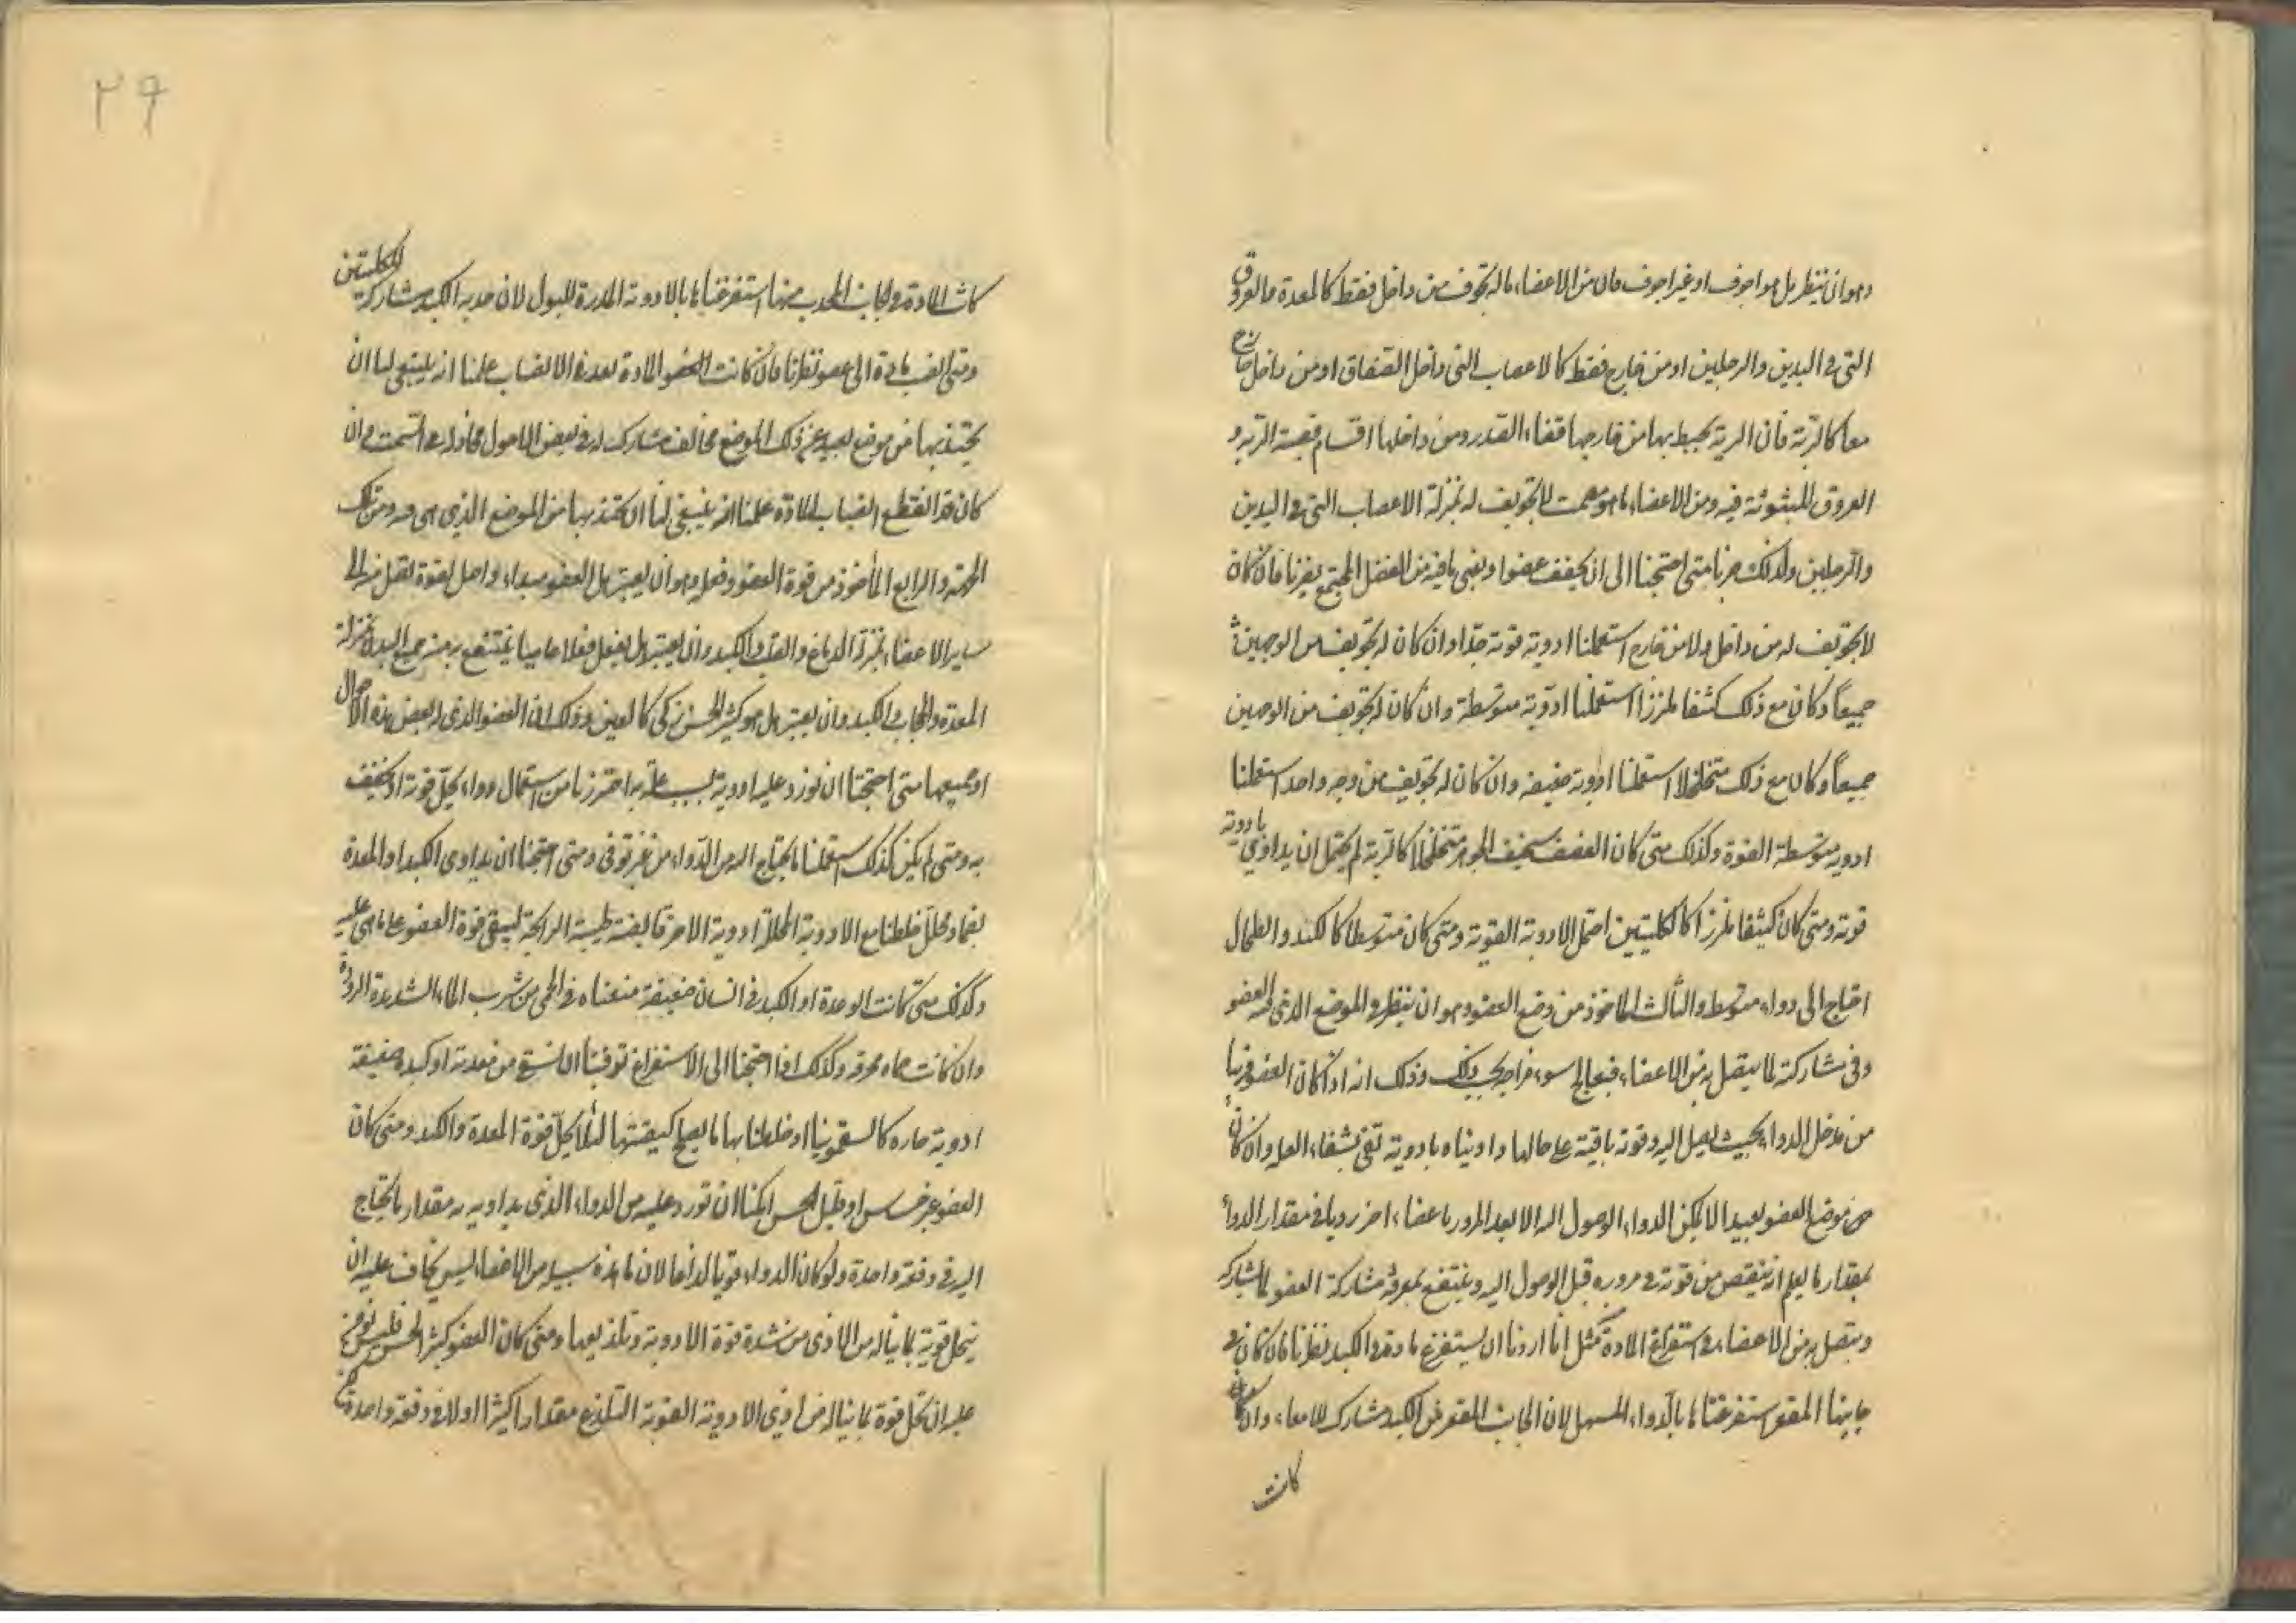 وهو ان ينظر هل هو اجوف او غير اجوف فان من الاعضاء ما له تجويف من داخل فقط كالمعدة والعروق
التى فى اليدين والرجلين او من خارج فقط كالاعصاب التى داخل الصفاق او من داخل وخارج
معا كالرية فان الرية يحيط بها من خارجها فضاء الصدر ومن داخلها اقسام قصبة الرية و
العروق المبثوثة فيه ومن الاعضاء ما هو مصمت لا تجويف له بمنزلة الاعصاب التى فى اليدين
والرجلين ولذلك صرنا متى احتجنا الى ان نجفف عضوا ونفنى ما فيه من الفضل المجتمع نظرنا فان كان
لا تجويف له من داخل ولا من خارج استعملنا ادوية قوية جدا وان كان له تجويف من الوجهين
جميعاً وكان مع ذلك كثيفا ملززا استعملنا ادوية متوسطة وان كان له تجويف من الوجهين
جميعاً وكان مع ذلك متخلخلا استعملنا ادوية ضعيفة وان كان له تجويف من وجه واحد استعملنا
ادوية متوسطة القوة وكذلك متى كان العضو سخيف الجوهر متخلخلا كالرية لم يحتمل ان يداوى بادوية
قوية ومتى كان كثيفا ملززا كالكليتين احتمل الادوية القوية ومتى كان متوسطا كالكبد والطحال
احتاج الى دواء متوسط والثالث الماخوذ من وضع العضو وهو ان ينظر فى الموضع الذى فيه العضو
وفى مشاركة لما يتصل به من الاعضاء فيعالج سوء مزاجه بحسب ذلك وذلك انه اذا كان العضو قريبا
من مدخل الدواء بحيث يصل اليه وقوته باقية على حالها داويناه بادوية تفى بشفاء العلة وان كان
موضع العضو بعيدا لا يمكن الدواء الوصول اليه الا بعد المرور باعضاء اخر زدنا فى مقدار الدواء
بمقدار ما يعلم انه ينقص من قوته فى مروره قبل الوصول اليه وينتفع بمعرفة مشاركة العضو لما يشاركه
ويتصل به من الاعضاء فى استفراغ المادة مثل انا اردنا ان يستفرغ مادة فى الكبد نظرنا فان كان فى
جانبها المقعر استفرغناها بالدواء المسهل لان الجانب المقعر من الكبد مشارك للامعاء وان
كانت
٢٩
كانت المادة فى الجانب المحدب منها استفرغناها بالادوية المدرة للبول لان حدبة الكبد مشاركة للكليتين
ومتى انصب مادة الى عضو نظرنا فان كانت المادة بعد فى الانصباب علمنا انه ينبغى لنا ان
نجتذبها من موضع بعيد عن ذلك الموضع مخالف مشارك له فى بعض الاصول محاذ له على السمت وان
كان قد انقطع انصباب المادة علمنا انه ينبغى لنا ان نجتذبها من الموضع الذى هى فيه ومن تلك
الجهة والرابع الماخوذ من قوة العضو وفعله وهو ان يعتبر هل العضو مبداء واصل لقوة تصل منه الى
سائر الاعضاء بمنزلة الدماغ والقلب والكبد وان يعتبر هل يفعل فعلا عاميا ينتفع به جميع البدن بمنزلة
المعدة والحجاب والكبد وان يعتبر هل هو كثير الحس زكى كالعين وذلك ان العضو الذى له بعض هذه الاحوال
او جميعها متى احتجنا ان نورد عليه ادوية بسبب علة به احترزنا من استعمال دواء يحل قوته او يضعف
به ومتى لم يكن كذلك استعملنا ما يحتاج اليه من الدواء من غير توقى ومتى احتجنا ان نداوى الكبد او المعدة
بضماد محلل خلطنا مع الادوية المحللة ادوية اخر قابضة طيبة الرائحة ليبقى قوة العضو على ما هى عليه
وكذلك متى كانت المعدة او الكبد فى انسان ضعيفة منعناه فى الحمى من شرب الماء الشديد البرد
وان كانت حماه محرقة وكذلك اذا احتجنا الى الاستفراغ توقينا ان نسقى من معدته او كبده ضعيفة
ادوية حارة كالسقمونيا او خلطنا بها ما يصلح كيفيتها لئلا يحل قوة المعدة والكبد ومتى كان
العضو غير حساس او قليل الحس امكننا ان نورد عليه من الدواء الذى يداويه به مقدار ما يحتاج
اليه فى دفعة واحدة ولو كان الدواء قويا لذاعا لان ما هذه سبيله من الاعضاء ليس يخاف عليه ان
ينحل قوته بما يناله من الاذى من شدة قوة الادوية وتلذيعها ومتى كان العضو كثير الحس فليس نؤمن
عليه ان تحل قوته بما يناله من اذى الادوية القوية التلذيع مقدارا كثيرا اولا فى دفعة واحدة